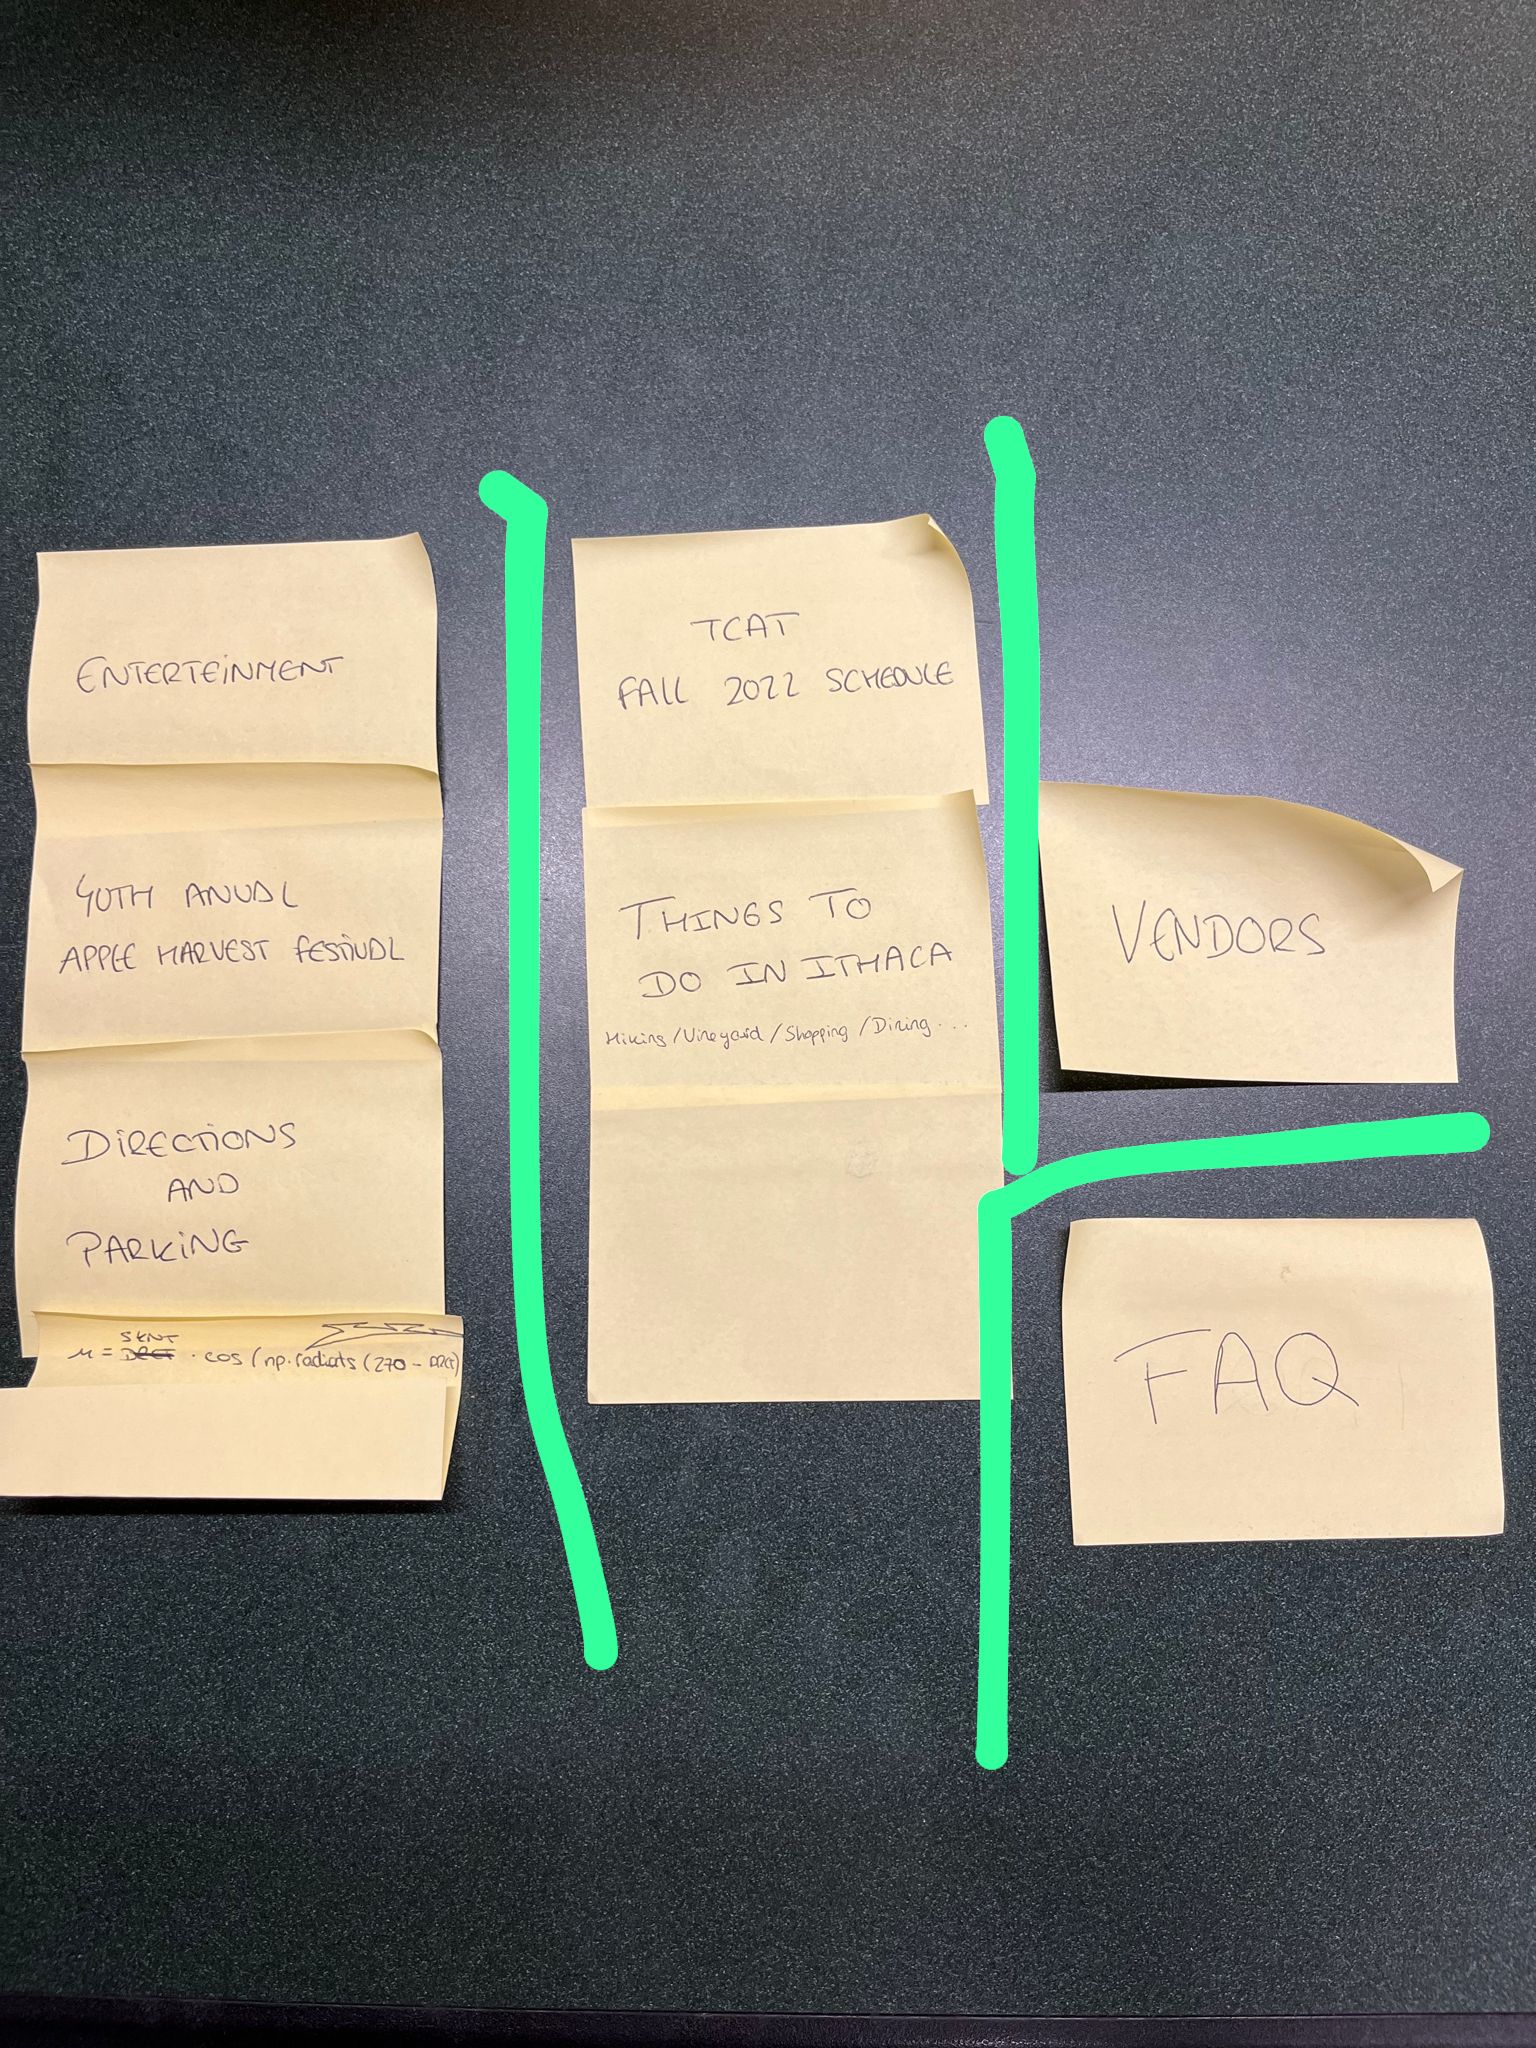 ENTERTEINMENT
40TH ANUAL
APPLE HARVEST FESTIVAL
DIRECTIONS
AND
PARKING
SKNT
u = DRCT . cos (np.radiats (270 - DRCT)
TCAT
FALL 2022 SCHEDULE
THINGS TO
DO IN ITHACA
Hiking / Vineyard / Shopping / Dining . . .
VENDORS
FAQ